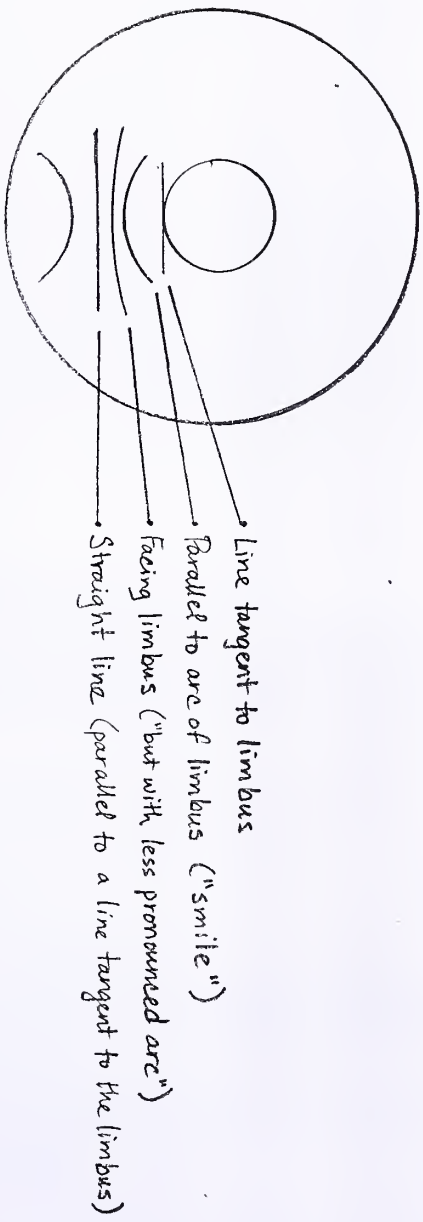 Line tangent to limbus
Parallel to arc of limbus ("smile")
Facing limbus ("but with less pronounced arc")
Straight line (parallel to a line tangent to the limbus)